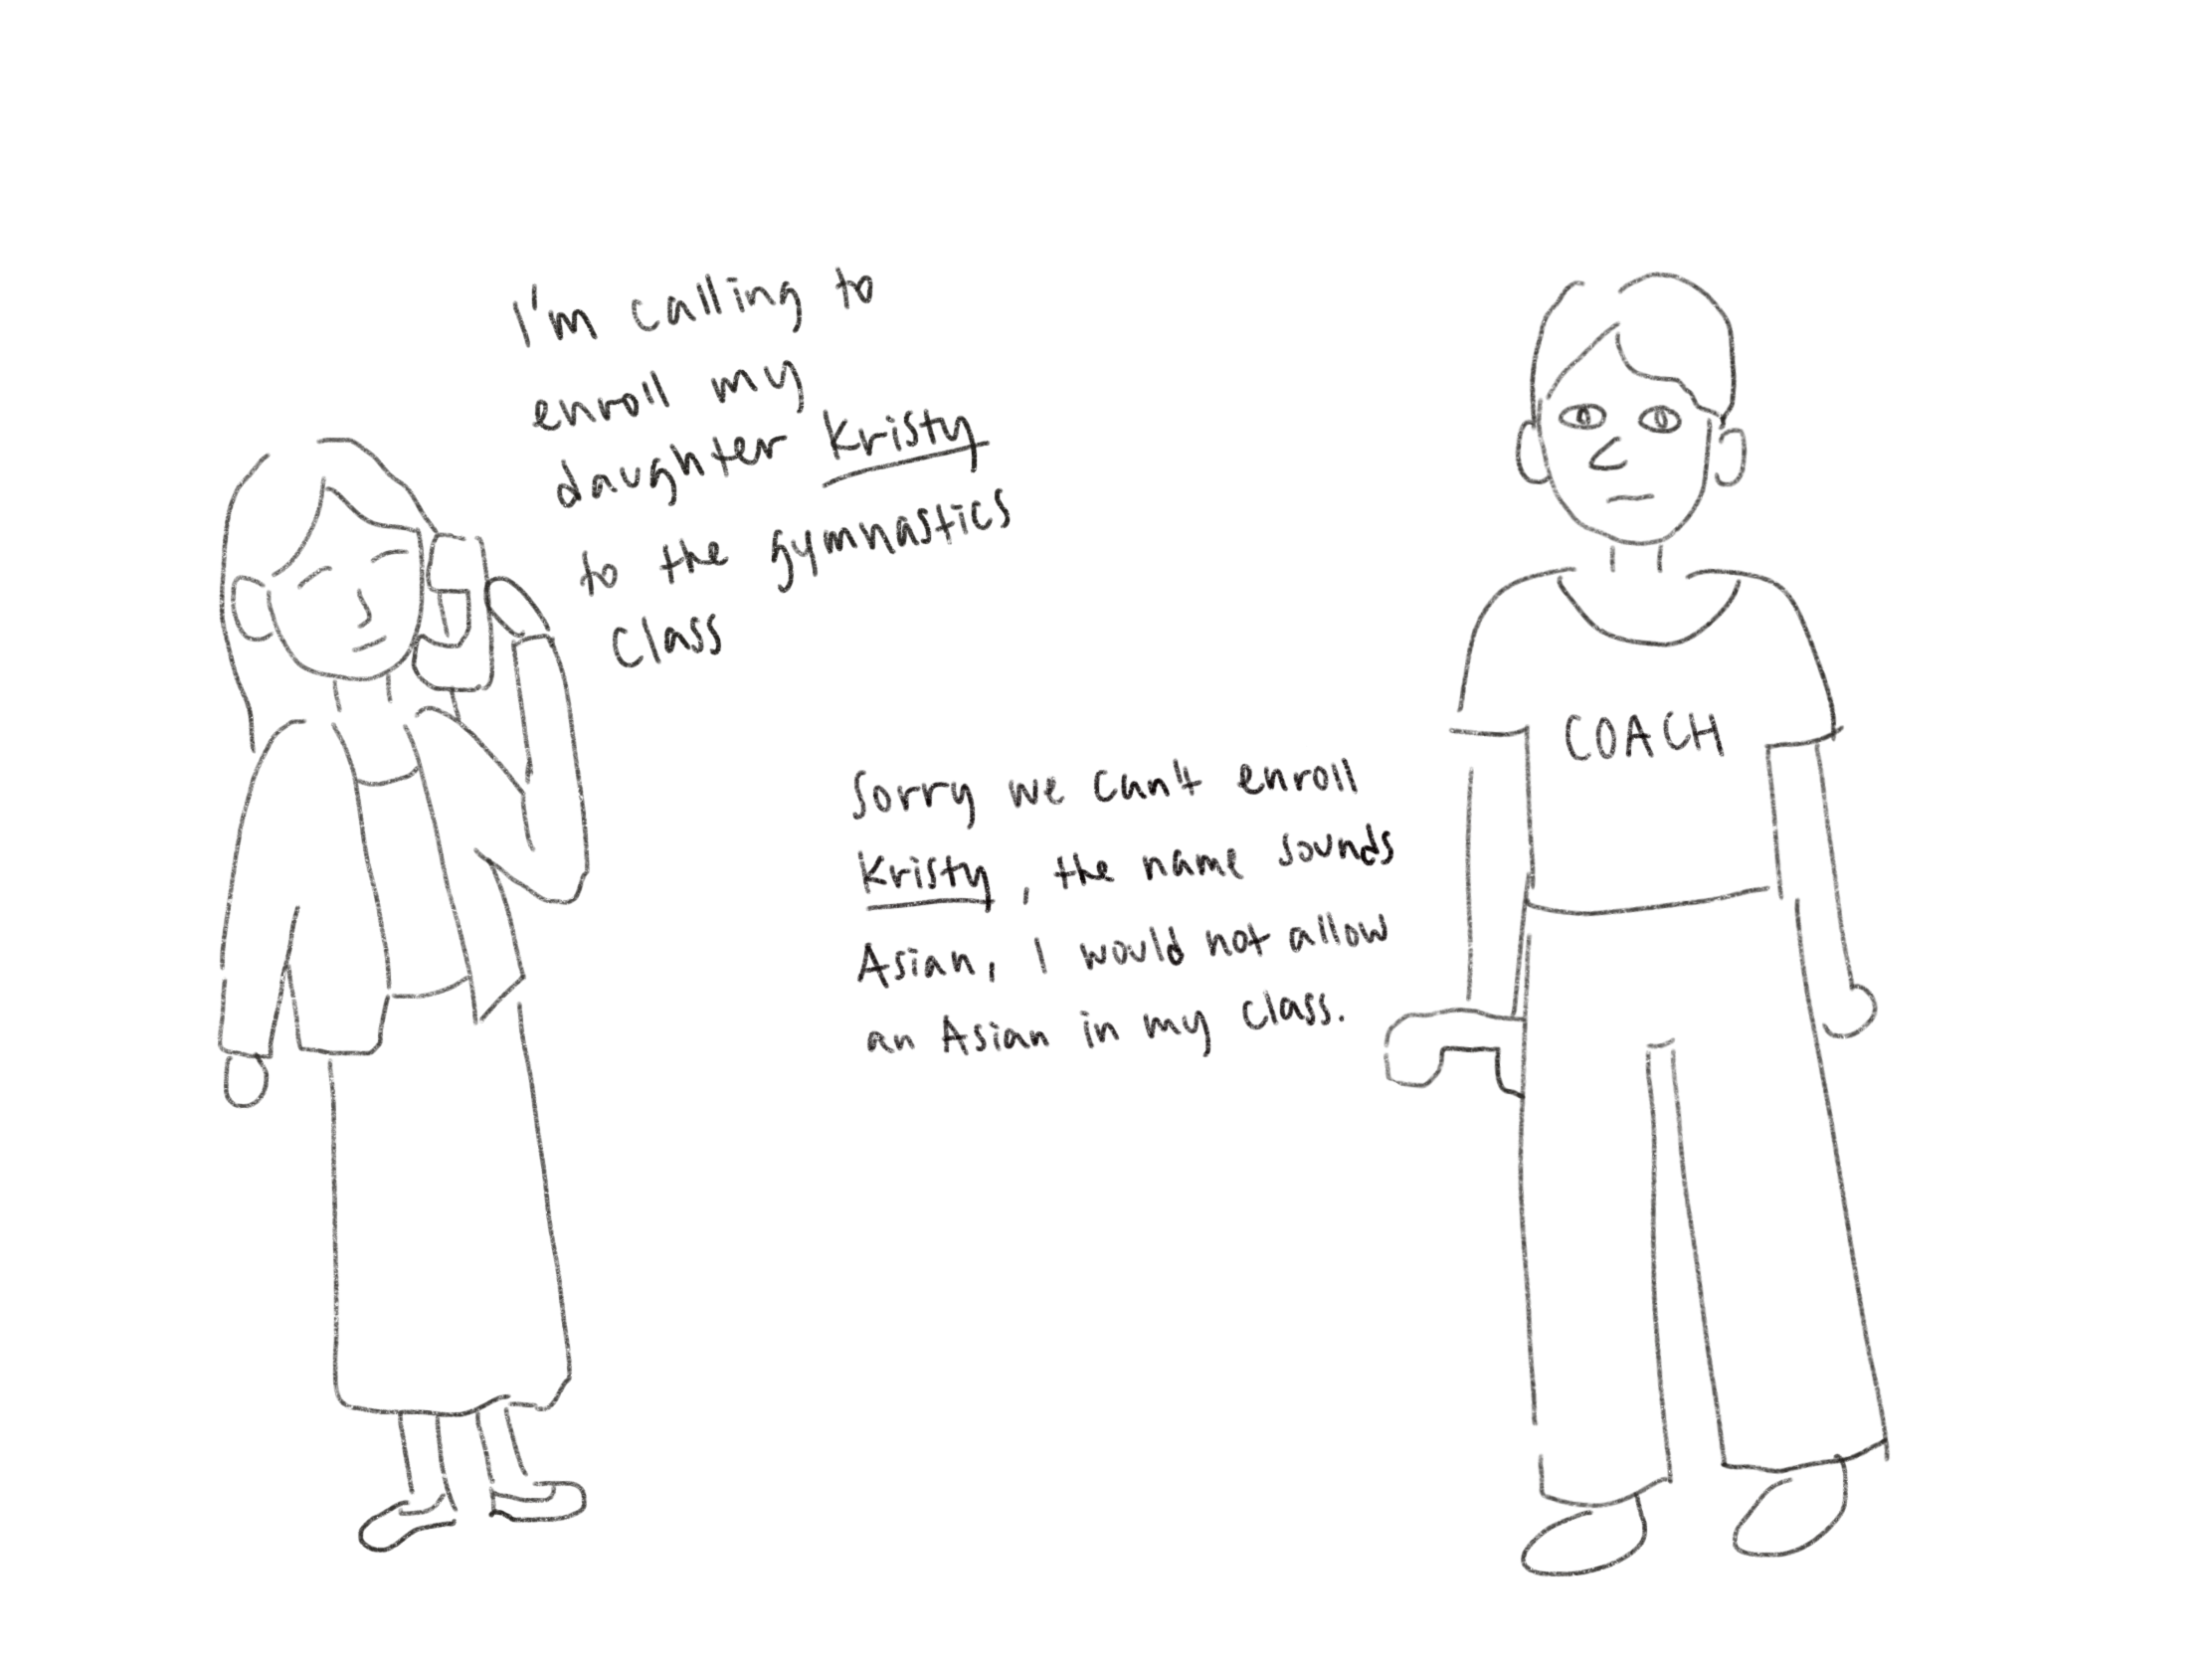 I'm calling to
enroll my
daughter Kristy
to the gymnastics
class
COACH
Sorry we can't enroll
Kristy, the name sounds
Asian, I would not allow
an Asian in my class.